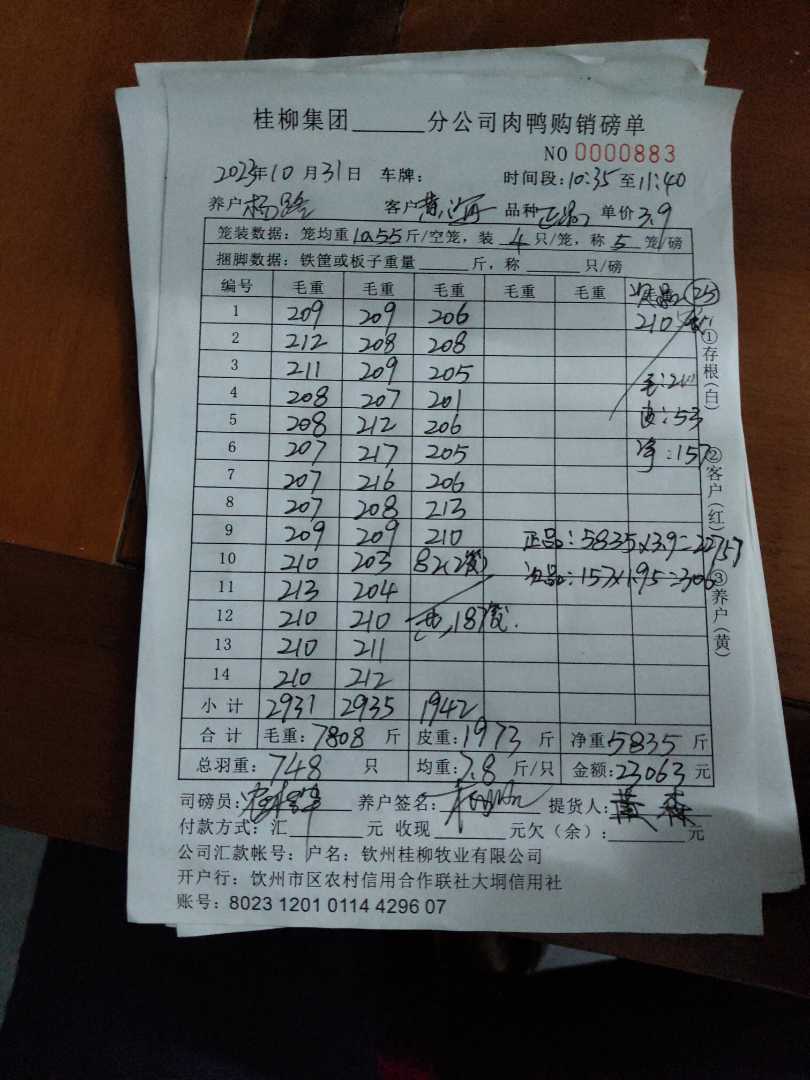 桂柳集团______分公司肉鸭购销磅单
NO 0000883
2023年10月31日 车牌: 时间段:10:35至11:40
养户 杨 客户 品种 正品 单价 3.9
笼装数据: 笼均重10.55斤/空笼, 装 4 只/笼, 称 5 笼/磅
捆脚数据: 铁筐或板子重量______斤, 称______只/磅
编号 毛重 毛重 毛重 毛重 毛重 次品: 25
1 209 209 206 210
2 212 208 208
3 211 209 205 毛:210
4 208 207 201
5 208 212 206 皮:53
6 207 217 205 净:157
7 207 216 206
8 207 208 213
9 209 209 210 正品:5835×3.9=22757
10 210 203 82(2笼) 次品:157×1.95=306
11 213 204
12 210 210 187笼.
13 210 211
14 210 212
小计 2931 2935 1942
合计 毛重:7808斤 皮重:1973斤 净重5835斤
总羽重:748 只 均重:7.8斤/只 金额:23063元
司磅员: 养户签名: 提货人:黄森
付款方式:汇______元 收现______元欠(余):______元
公司汇款帐号: 户名: 钦州桂柳牧业有限公司
开户行: 饮州市区农村信用合作联社大垌信用社
账号: 8023 1201 0114 4296 07
①存根(白) ②客户(红) ③养户(黄)